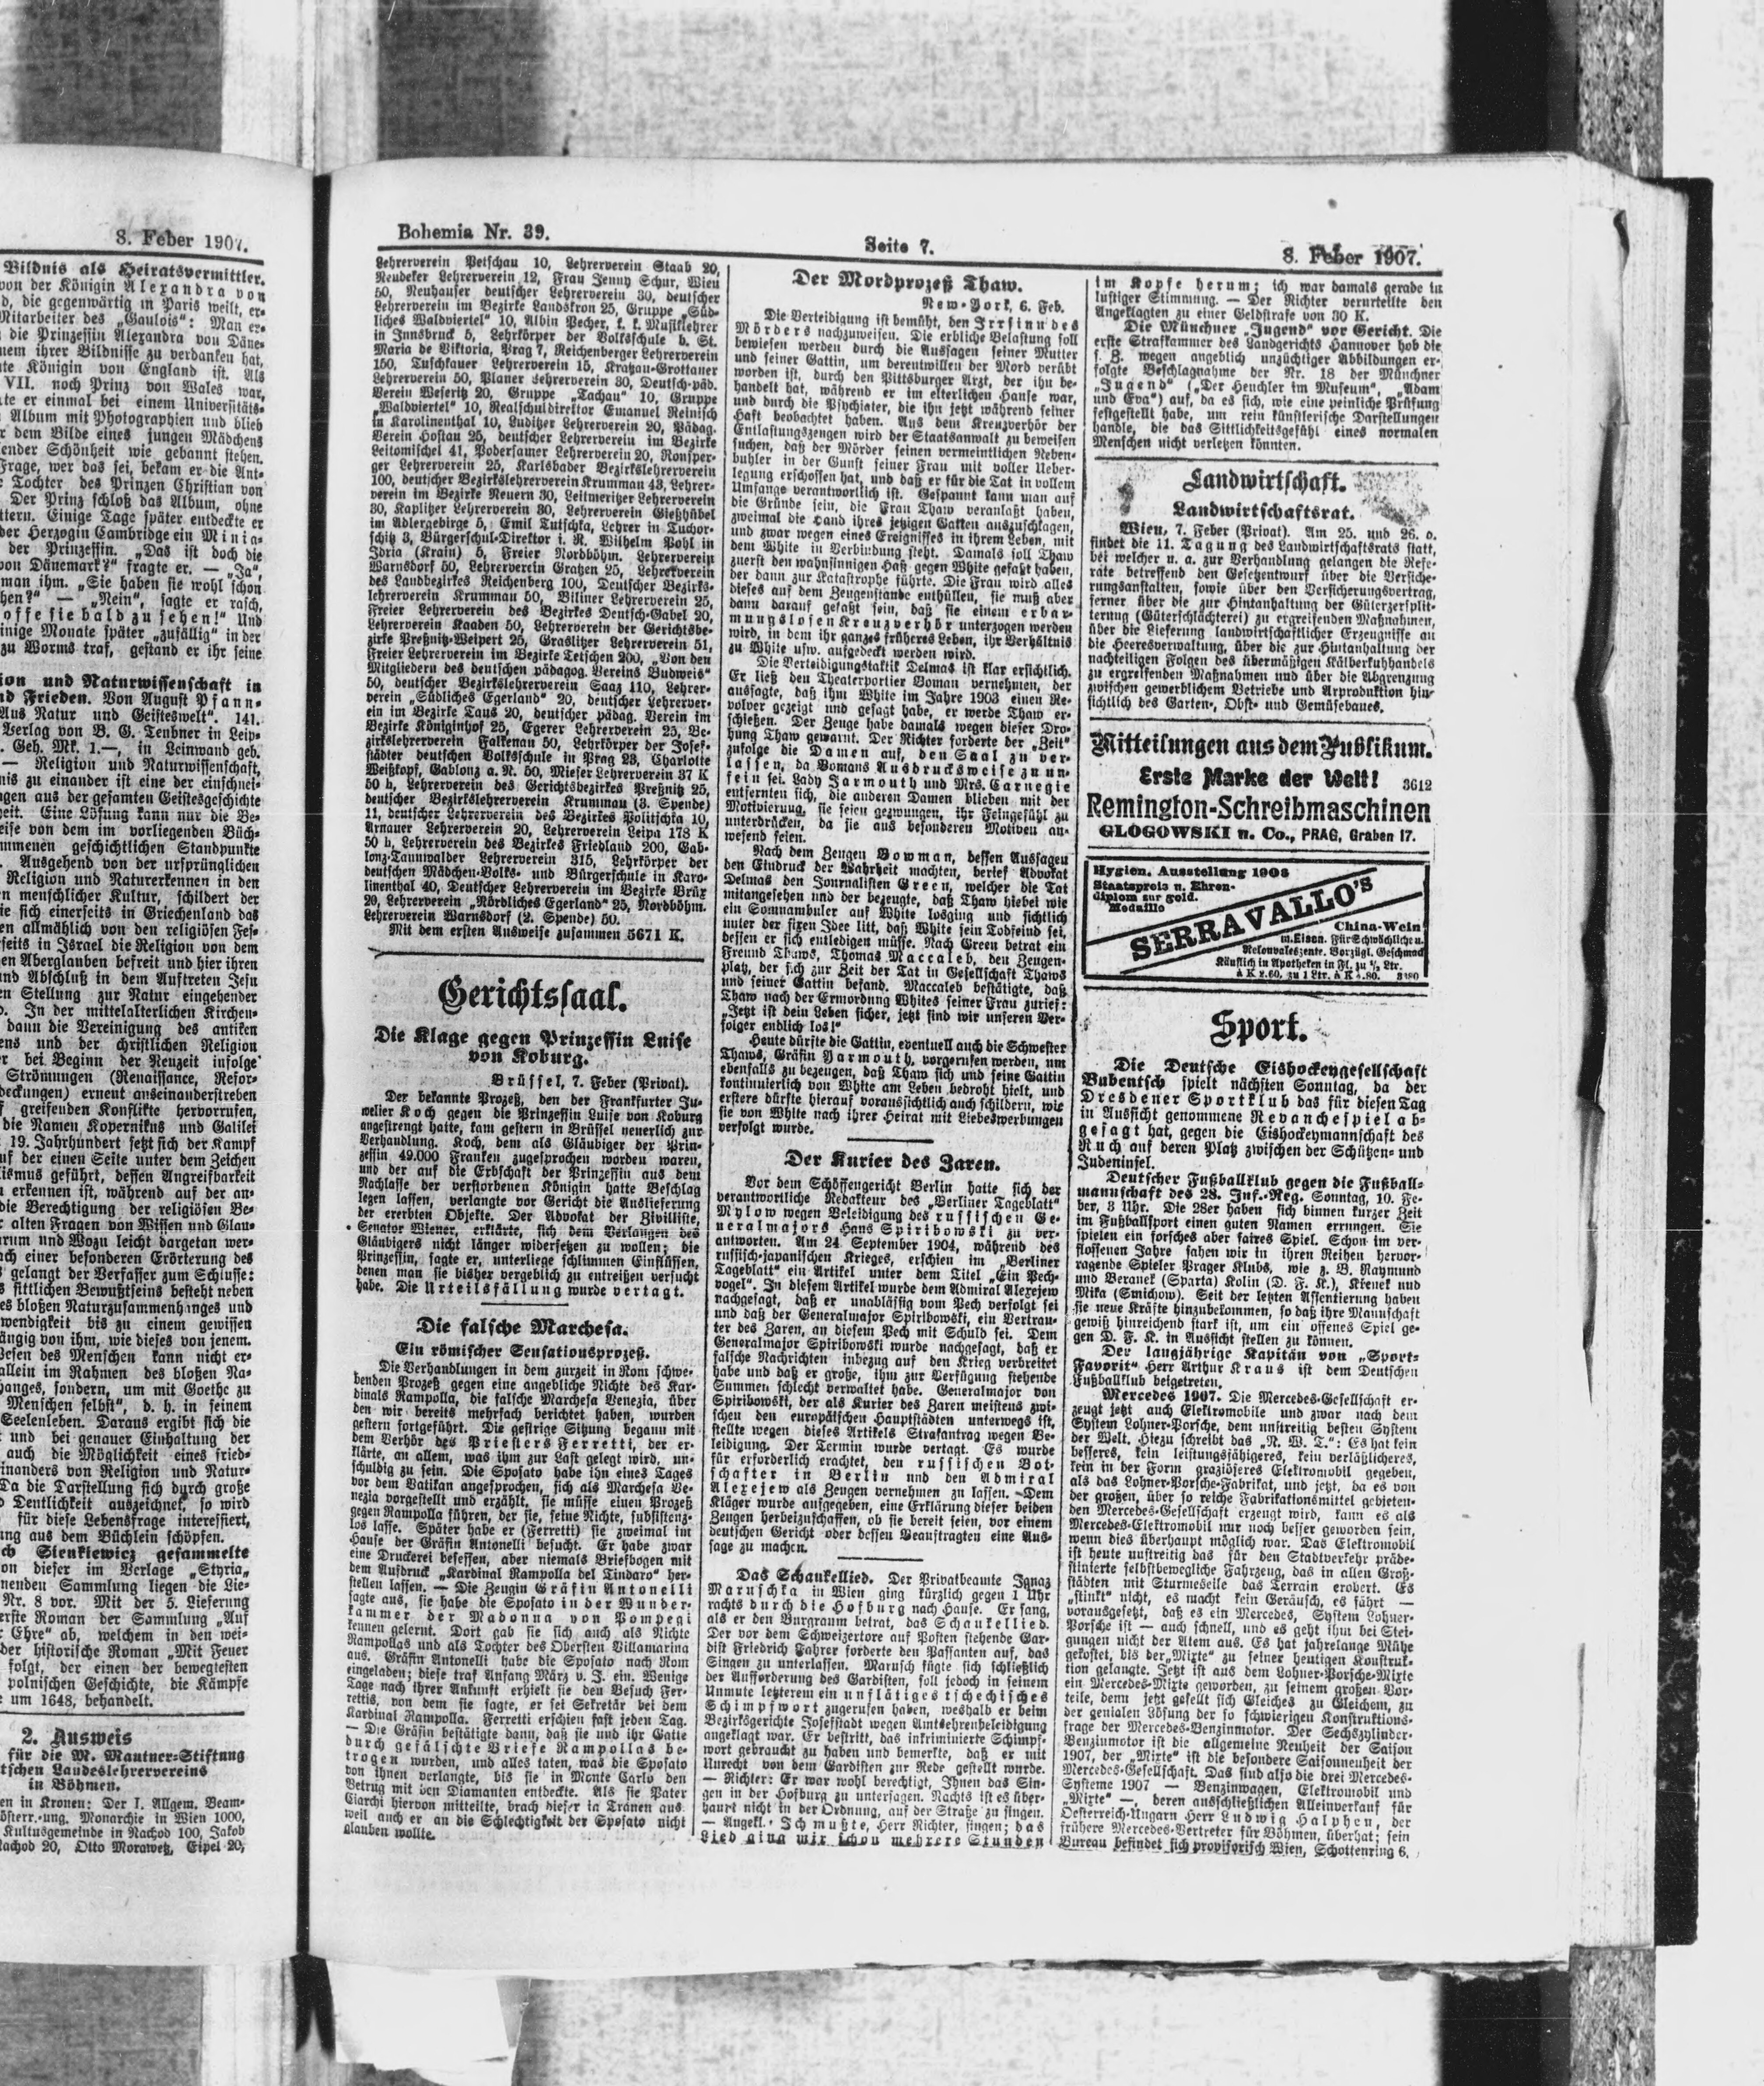 8. Feber 1907.
Bildnis als Heiratsvermittler.
von der Königin Alexandra von
die gegenwärtig in Paris weilt, er-
Mitarbeiter des „Gaulois“: Man er-
die Prinzessin Alexandra von Däne-
ihrer Bildnisse zu verdanken hat,
Königin von England ist. Als
VII. noch Prinz von Wales war,
er einmal bei einem Universitäts-
Album mit Photographien und blieb
dem Bilde eines jungen Mädchens
Schönheit wie gebannt stehen.
Frage, wer das sei, bekam er die Ant-
Tochter des Prinzen Christian von
Der Prinz schloß das Album, ohne
Einige Tage später entdeckte er
der Herzogin Cambridge ein Minia-
der Prinzessin. „Das ist doch die
von Dänemark?“ fragte er. — „Ja“,
man ihm. „Sie haben sie wohl schon
— „Nein“, sagte er rasch,
offe sie bald zu sehen!“ Und
einige Monate später „zufällig“ in der
zu Worms traf, gestand er ihr seine
ion und Naturwissenschaft in
nd Frieden. Von August Pfann-
Aus Natur und Geisteswelt“. 141.
Verlag von B. G. Teubner in Leip-
Geh. Mk. 1.—, in Leinwand geb.
— Religion und Naturwissenschaft,
zu einander ist eine der einschnei-
aus der gesamten Geistesgeschichte
Eine Lösung kann nur die Be-
von dem im vorliegenden Büch-
geschichtlichen Standpunkte
Ausgehend von der ursprünglichen
Religion und Naturerkennen in den
menschlicher Kultur, schildert der
sich einerseits in Griechenland das
allmählich von den religiösen Fes-
seits in Israel die Religion von dem
Aberglauben befreit und hier ihren
Abschluß in dem Auftreten Jesu
Stellung zur Natur eingehender
In der mittelalterlichen Kirchen-
dann die Vereinigung des antiken
und der christlichen Religion
bei Beginn der Neuzeit infolge
Strömungen (Renaissance, Refor-
deckungen) erneut auseinanderstreben
greifenden Konflikte hervorrufen,
die Namen Kopernikus und Galilei
19. Jahrhundert setzt sich der Kampf
auf der einen Seite unter dem Zeichen
geführt, dessen Angreifbarkeit
erkennen ist, während auf der an-
die Berechtigung der religiösen Be-
alten Fragen von Wissen und Glau-
und Wozu leicht dargetan wer-
nach einer besonderen Erörterung des
gelangt der Verfasser zum Schlusse:
sittlichen Bewußtseins besteht neben
des bloßen Naturzusammenhanges und
wendigkeit bis zu einem gewissen
von ihm, wie dieses von jenem.
Wesen des Menschen kann nicht er-
allein im Rahmen des bloßen Na-
hanges, sondern, um mit Goethe zu
Menschen selbst“, d. h. in seinem
Seelenleben. Daraus ergibt sich die
und bei genauer Einhaltung der
auch die Möglichkeit eines fried-
einanders von Religion und Natur-
Da die Darstellung sich durch große
Deutlichkeit auszeichnet, so wird
für diese Lebensfrage interessiert,
aus dem Büchlein schöpfen.
Sienkiewicz gesammelte
dieser im Verlage „Styria“,
Sammlung liegen die Lie-
Nr. 8 vor. Mit der 5. Lieferung
erste Roman der Sammlung „Auf
Ehre“ ab, welchem in den wei-
der historische Roman „Mit Feuer
folgt, der einen der bewegtesten
polnischen Geschichte, die Kämpfe
um 1648, behandelt.
2. Ausweis
für die M. Mautner-Stiftung
tschen Landeslehrervereins
in Böhmen.
in Kronen: Der I. Allgem. Beam-
österr.-ung. Monarchie in Wien 1000,
Kultusgemeinde in Nachod 100, Jakob
Nachod 20, Otto Morawetz, Eipel 20,
Bohemia Nr. 39.
Seite 7.
8. Feber 1907.
Lehrerverein Petschau 10, Lehrerverein Staab 20,
Neudeker Lehrerverein 12, Frau Jenny Schur, Wien
50, Neuhauser deutscher Lehrerverein 30, deutscher
Lehrerverein im Bezirke Landskron 25, Gruppe „Süd-
liches Waldviertel“ 10, Albin Pecher, k. k. Musiklehrer
in Innsbruck 5, Lehrkörper der Volksschule b. St.
Maria de Viktoria, Prag 7, Reichenberger Lehrerverein
150, Tuschkauer Lehrerverein 15, Kratzau-Grottauer
Lehrerverein 50, Planer Lehrerverein 30, Deutsch-päd.
Verein Weseritz 20, Gruppe „Tachau“ 10, Gruppe
„Waldviertel“ 10, Realschuldirektor Emanuel Reinisch
in Karolinenthal 10, Luditzer Lehrerverein 20, Pädag.
Verein Hostau 25, deutscher Lehrerverein im Bezirke
Leitomischel 41, Podersamer Lehrerverein 20, Ronsper-
ger Lehrerverein 25, Karlsbader Bezirkslehrerverein
100, deutscher Bezirkslehrerverein Krummau 43, Lehrer-
verein im Bezirke Neuern 30, Leitmeritzer Lehrerverein
30, Kaplitzer Lehrerverein 30, Lehrerverein Gießhübel
im Adlergebirge 5, Emil Tutschka, Lehrer in Tuchor-
schitz 3, Bürgerschul-Direktor i. R. Wilhelm Pohl in
Idria (Krain) 5, Freier Nordböhm. Lehrerverein
Warnsdorf 50, Lehrerverein Gratzen 25, Lehrerverein
des Landbezirkes Reichenberg 100, Deutscher Bezirks-
lehrerverein Krummau 50, Biliner Lehrerverein 25,
Freier Lehrerverein des Bezirkes Deutsch-Gabel 20,
Lehrerverein Kaaden 50, Lehrerverein der Gerichtsbe-
zirke Preßnitz-Weipert 25, Graslitzer Lehrerverein 51,
Freier Lehrerverein im Bezirke Tetschen 200, „Von den
Mitgliedern des deutschen pädagog. Vereins Budweis“
50, deutscher Bezirkslehrerverein Saaz 110, Lehrer-
verein „Südliches Egerland“ 20, deutscher Lehrerver-
ein im Bezirke Taus 20, deutscher pädag. Verein im
Bezirke Königinhof 25, Egerer Lehrerverein 25, Be-
zirkslehrerverein Falkenau 50, Lehrkörper der Josef-
städter deutschen Volksschule in Prag 23, Charlotte
Weißkopf, Gablonz a. N. 50, Mieser Lehrerverein 37 K
50 h, Lehrerverein des Gerichtsbezirkes Preßnitz 25,
deutscher Bezirkslehrerverein Krummau (3. Spende)
11, deutscher Lehrerverein des Bezirkes Politschka 10,
Arnauer Lehrerverein 20, Lehrerverein Leipa 178 K
50 h, Lehrerverein des Bezirkes Friedland 200, Gab-
lonz-Tannwalder Lehrerverein 315, Lehrkörper der
deutschen Mädchen-Volks- und Bürgerschule in Karo-
linenthal 40, Deutscher Lehrerverein im Bezirke Brüx
20, Lehrerverein „Nördliches Egerland“ 25, Nordböhm.
Lehrerverein Warnsdorf (2. Spende) 50.
Mit dem ersten Ausweise zusammen 5671 K.
Gerichtssaal.
Die Klage gegen Prinzessin Luise
von Koburg.
Brüssel, 7. Feber (Privat).
Der bekannte Prozeß, den der Frankfurter Ju-
welier Koch gegen die Prinzessin Luise von Koburg
angestrengt hatte, kam gestern in Brüssel neuerlich zur
Verhandlung. Koch, dem als Gläubiger der Prin-
zessin 49.000 Franken zugesprochen worden waren,
und der auf die Erbschaft der Prinzessin aus dem
Nachlasse der verstorbenen Königin hatte Beschlag
legen lassen, verlangte vor Gericht die Auslieferung
der ererbten Objekte. Der Advokat der Zivilliste,
Senator Wiener, erklärte, sich dem Verlangen des
Gläubigers nicht länger widersetzen zu wollen; die
Prinzessin, sagte er, unterliege schlimmen Einflüssen,
denen man sie bisher vergeblich zu entreißen versucht
habe. Die Urteilsfällung wurde vertagt.
Die falsche Marchesa.
Ein römischer Sensationsprozeß.
Die Verhandlungen in dem zurzeit in Rom schwe-
benden Prozeß gegen eine angebliche Nichte des Kar-
dinals Rampolla, die falsche Marchesa Venezia, über
den wir bereits mehrfach berichtet haben, wurden
gestern fortgeführt. Die gestrige Sitzung begann mit
dem Verhör des Priesters Ferretti, der er-
klärte, an allem, was ihm zur Last gelegt wird, un-
schuldig zu sein. Die Sposato habe ihn eines Tages
vor dem Vatikan angesprochen, sich als Marchesa Ve-
nezia vorgestellt und erzählt, sie müsse einen Prozeß
gegen Rampolla führen, der sie, seine Nichte, subsistenz-
los lasse. Später habe er (Ferretti) sie zweimal im
Hause der Gräfin Antonelli besucht. Er habe zwar
eine Druckerei besessen, aber niemals Briefbogen mit
dem Aufdruck „Kardinal Rampolla del Tindaro“ her-
stellen lassen. — Die Zeugin Gräfin Antonelli
sagte aus, sie habe die Sposato in der Wunder-
kammer der Madonna von Pompegi
kennen gelernt. Dort gab sie sich auch als Nichte
Rampollas und als Tochter des Obersten Villamarina
aus. Gräfin Antonelli habe die Sposato nach Rom
eingeladen; diese traf Anfang März v. J. ein. Wenige
Tage nach ihrer Ankunft erhielt sie den Besuch Fer-
rettis, von dem sie sagte, er sei Sekretär bei dem
Kardinal Rampolla. Ferretti erschien fast jeden Tag.
— Die Gräfin bestätigte dann, daß sie und ihr Gatte
durch gefälschte Briefe Rampollas be-
trogen wurden, und alles taten, was die Sposato
von ihnen verlangte, bis sie in Monte Carlo den
Betrug mit den Diamanten entdeckte. Als sie Pater
Ciarchi hiervon mitteilte, brach dieser in Tränen aus
weil auch er an die Schlechtigkeit der Sposato nicht
glauben wollte.
Der Mordprozeß Thaw.
New-York, 6. Feb.
Die Verteidigung ist bemüht, den Irrsinn des
Mörders nachzuweisen. Die erbliche Belastung soll
bewiesen werden durch die Aussagen seiner Mutter
und seiner Gattin, um derentwillen der Mord verübt
worden ist, durch den Pittsburger Arzt, der ihn be-
handelt hat, während er im elterlichen Hause war,
und durch die Psychiater, die ihn jetzt während seiner
Haft beobachtet haben. Aus dem Kreuzverhör der
Entlastungszeugen wird der Staatsanwalt zu beweisen
suchen, daß der Mörder seinen vermeintlichen Neben-
buhler in der Gunst seiner Frau mit voller Ueber-
legung erschossen hat, und daß er für die Tat in vollem
Umfange verantwortlich ist. Gespannt kann man auf
die Gründe sein, die Frau Thaw veranlaßt haben,
zweimal die Hand ihres jetzigen Gatten auszuschlagen,
und zwar wegen eines Ereignisses in ihrem Leben, mit
dem White in Verbindung steht. Damals soll Thaw
zuerst den wahnsinnigen Haß gegen White gefaßt haben,
der dann zur Katastrophe führte. Die Frau wird alles
dieses auf dem Zeugenstande enthüllen, sie muß aber
dann darauf gefaßt sein, daß sie einem erbar-
mungslosen Kreuzverhör unterzogen werden
wird, in dem ihr ganzes früheres Leben, ihr Verhältnis
zu White usw. aufgedeckt werden wird.
Die Verteidigungstaktik Delmas ist klar ersichtlich.
Er ließ den Theaterportier Boman vernehmen, der
aussagte, daß ihm White im Jahre 1903 einen Re-
volver gezeigt und gesagt habe, er werde Thaw er-
schießen. Der Zeuge habe damals wegen dieser Dro-
hung Thaw gewarnt. Der Richter forderte der „Zeit“
zufolge die Damen auf, den Saal zu ver-
lassen, da Bomans Ausdrucksweise zu un-
fein sei. Lady Jarmouth und Mrs. Carnegie
entfernten sich, die anderen Damen blieben mit der
Motivierung, sie seien gezwungen, ihr Feingefühl zu
unterdrücken, da sie aus besonderen Motiven an-
wesend seien.
Nach dem Zeugen Bowman, dessen Aussagen
den Eindruck der Wahrheit machten, berief Advokat
Delmas den Journalisten Green, welcher die Tat
mitangesehen und der bezeugte, daß Thaw hiebei wie
ein Somnambuler auf White losging und sichtlich
unter der fixen Idee litt, daß White sein Todfeind sei,
dessen er sich entledigen müsse. Nach Green betrat ein
Freund Thaws, Thomas Maccaleb, den Zeugen-
platz, der sich zur Zeit der Tat in Gesellschaft Thaws
und seiner Gattin befand. Maccaleb bestätigte, daß
Thaw nach der Ermordung Whites seiner Frau zurief:
„Jetzt ist dein Leben sicher, jetzt sind wir unseren Ver-
folger endlich los!“
Heute dürfte die Gattin, eventuell auch die Schwester
Thaws, Gräfin Yarmouth, vorgerufen werden, um
ebenfalls zu bezeugen, daß Thaw sich und seine Gattin
kontinuierlich von White am Leben bedroht hielt, und
erstere dürfte hierauf voraussichtlich auch schildern, wie
sie von White nach ihrer Heirat mit Liebeswerbungen
verfolgt wurde.
Der Kurier des Zaren.
Vor dem Schöffengericht Berlin hatte sich der
verantwortliche Redakteur des „Berliner Tageblatt“
Mylow wegen Beleidigung des russischen Ge-
neralmajors Hans Spiribowski zu ver-
antworten. Am 24 September 1904, während des
russisch-japanischen Krieges, erschien im „Berliner
Tageblatt“ ein Artikel unter dem Titel „Ein Pech-
vogel“. In diesem Artikel wurde dem Admiral Alexejew
nachgesagt, daß er unablässig vom Pech verfolgt sei
und daß der Generalmajor Spiribowski, ein Vertrau-
ter des Zaren, an diesem Pech mit Schuld sei. Dem
Generalmajor Spiribowski wurde nachgesagt, daß er
falsche Nachrichten inbezug auf den Krieg verbreitet
habe und daß er große, ihm zur Verfügung stehende
Summen schlecht verwaltet habe. Generalmajor von
Spiribowski, der als Kurier des Zaren meistens zwi-
schen den europäischen Hauptstädten unterwegs ist,
stellte wegen dieses Artikels Strafantrag wegen Be-
leidigung. Der Termin wurde vertagt. Es wurde
für erforderlich erachtet, den russischen Bot-
schafter in Berlin und den Admiral
Alexejew als Zeugen vernehmen zu lassen. Dem
Kläger wurde aufgegeben, eine Erklärung dieser beiden
Zeugen herbeizuschaffen, ob sie bereit seien, vor einem
deutschen Gericht oder dessen Beauftragten eine Aus-
sage zu machen.
Das Schaukellied. Der Privatbeamte Ignaz
Maruschka in Wien ging kürzlich gegen 1 Uhr
nachts durch die Hofburg nach Hause. Er sang,
als er den Burgraum betrat, das Schaukellied.
Der vor dem Schweizertore auf Posten stehende Gar-
dist Friedrich Fahrer forderte den Passanten auf, das
Singen zu unterlassen. Marusch fügte sich schließlich
der Aufforderung des Gardisten, soll jedoch in seinem
Unmute letzterem ein unflätiges tschechisches
Schimpfwort zugerufen haben, weshalb er beim
Bezirksgerichte Josefstadt wegen Amtsehrenbeleidigung
angeklagt war. Er bestritt, das inkriminierte Schimpf-
wort gebraucht zu haben und bemerkte, daß er mit
Unrecht von dem Gardisten zur Rede gestellt wurde.
— Richter: Er war wohl berechtigt, Ihnen das Sin-
gen in der Hofburg zu untersagen. Nachts ist es über-
haupt nicht in der Ordnung, auf der Straße zu singen.
— Angekl.: Ich mußte, Herr Richter, singen; das
Lied ging mir schon mehrere Stunden
im Kopfe herum; ich war damals gerade in
lustiger Stimmung. — Der Richter verurteilte den
Angeklagten zu einer Geldstrafe von 30 K.
Die Münchner „Jugend“ vor Gericht. Die
erste Strafkammer des Landgerichts Hannover hob die
s. Z. wegen angeblich unzüchtiger Abbildungen er-
folgte Beschlagnahme der Nr. 18 der Münchner
„Jugend“ („Der Heuchler im Museum“, „Adam
und Eva“) auf, da es sich, wie eine peinliche Prüfung
festgestellt habe, um rein künstlerische Darstellungen
handle, die das Sittlichkeitsgefühl eines normalen
Menschen nicht verletzen könnten.
Landwirtschaft.
Landwirtschaftsrat.
Wien, 7. Feber (Privat). Am 25. und 26. d.
findet die 11. Tagung des Landwirtschaftsrats statt,
bei welcher u. a. zur Verhandlung gelangen die Refe-
rate betreffend den Gesetzentwurf über die Versiche-
rungsanstalten, sowie über den Versicherungsvertrag,
ferner über die zur Hintanhaltung der Güterzersplit-
terung (Güterschlächterei) zu ergreifenden Maßnahmen,
über die Lieferung landwirtschaftlicher Erzeugnisse an
die Heeresverwaltung, über die zur Hintanhaltung der
nachteiligen Folgen des übermäßigen Kälberkuhhandels
zu ergreifenden Maßnahmen und über die Abgrenzung
zwischen gewerblichem Betriebe und Urproduktion hin-
sichtlich des Garten-, Obst- und Gemüsebaues.
Mitteilungen aus dem Publikum.
Erste Marke der Welt! 3612
Remington-Schreibmaschinen
GLOGOWSKI u. Co., PRAG, Graben 17.
Hygien. Ausstellung 1906
Staatspreis u. Ehren-
diplom zur gold.
Medaille
SERRAVALLO'S
China-Wein
m. Eisen. Für Schwächliche u.
Rekonvaleszente. Vorzügl. Geschmack
Käuflich in Apotheken in Fl. zu ½ Ltr.
à K 2.60, zu 1 Ltr. à K 4.80.
Sport.
Die Deutsche Eishockeygesellschaft
Bubentsch spielt nächsten Sonntag, da der
Dresdener Sportklub das für diesen Tag
in Aussicht genommene Revanchespiel ab-
gesagt hat, gegen die Eishockeymannschaft des
Ruch auf deren Platz zwischen der Schützen- und
Judeninsel.
Deutscher Fußballklub gegen die Fußball-
mannschaft des 28. Inf.-Reg. Sonntag, 10. Fe-
ber, 3 Uhr. Die 28er haben sich binnen kurzer Zeit
im Fußballsport einen guten Namen errungen. Sie
spielen ein forsches aber faires Spiel. Schon im ver-
flossenen Jahre sahen wir in ihren Reihen hervor-
ragende Spieler Prager Klubs, wie z. B. Raymund
und Beranek (Sparta) Kolin (D. F. K.), Krenek und
Mika (Smichow). Seit der letzten Assentierung haben
sie neue Kräfte hinzubekommen, so daß ihre Mannschaft
gewiß hinreichend stark ist, um ein offenes Spiel ge-
gen D. F. K. in Aussicht stellen zu können.
Der langjährige Kapitän von „Sport-
Favorit“ Herr Arthur Kraus ist dem Deutschen
Fußballklub beigetreten.
Mercedes 1907. Die Mercedes-Gesellschaft er-
zeugt jetzt auch Elektromobile und zwar nach dem
System Lohner-Porsche, dem unstreitig besten System
der Welt. Hiezu schreibt das „N. W. T.“: Es hat kein
besseres, kein leistungsfähigeres, kein verläßlicheres,
kein in der Form graziöseres Elektromobil gegeben,
als das Lohner-Porsche-Fabrikat, und jetzt, da es von
der großen, über so reiche Fabrikationsmittel gebieten-
den Mercedes-Gesellschaft erzeugt wird, kann es als
Mercedes-Elektromobil nur noch besser geworden sein,
wenn dies überhaupt möglich war. Das Elektromobil
ist heute unstreitig das für den Stadtverkehr präde-
stinierte selbstbewegliche Fahrzeug, das in allen Groß-
städten mit Sturmeseile das Terrain erobert. Es
„stinkt“ nicht, es macht kein Geräusch, es fährt —
vorausgesetzt, daß es ein Mercedes, System Lohner-
Porsche ist — auch schnell, und es geht ihm bei Stei-
gungen nicht der Atem aus. Es hat jahrelange Mühe
gekostet, bis der „Mixte“ zu seiner heutigen Konstruk-
tion gelangte. Jetzt ist aus dem Lohner-Porsche-Mixte
ein Mercedes-Mixte geworden, zu seinem großen Vor-
teile, denn jetzt gesellt sich Gleiches zu Gleichem, zu
der genialen Lösung der so schwierigen Konstruktions-
frage der Mercedes-Benzinmotor. Der Sechszylinder-
Benzinmotor ist die allgemeine Neuheit der Saison
1907, der „Mixte“ ist die besondere Saisonneuheit der
Mercedes-Gesellschaft. Das sind also die drei Mercedes-
Systeme 1907 — Benzinwagen, Elektromobil und
„Mixte“ —, deren ausschließlichen Alleinverkauf für
Oesterreich-Ungarn Herr Ludwig Halphen, der
frühere Mercedes-Vertreter für Böhmen, überhat; sein
Bureau befindet sich provisorisch Wien, Schottenring 6.